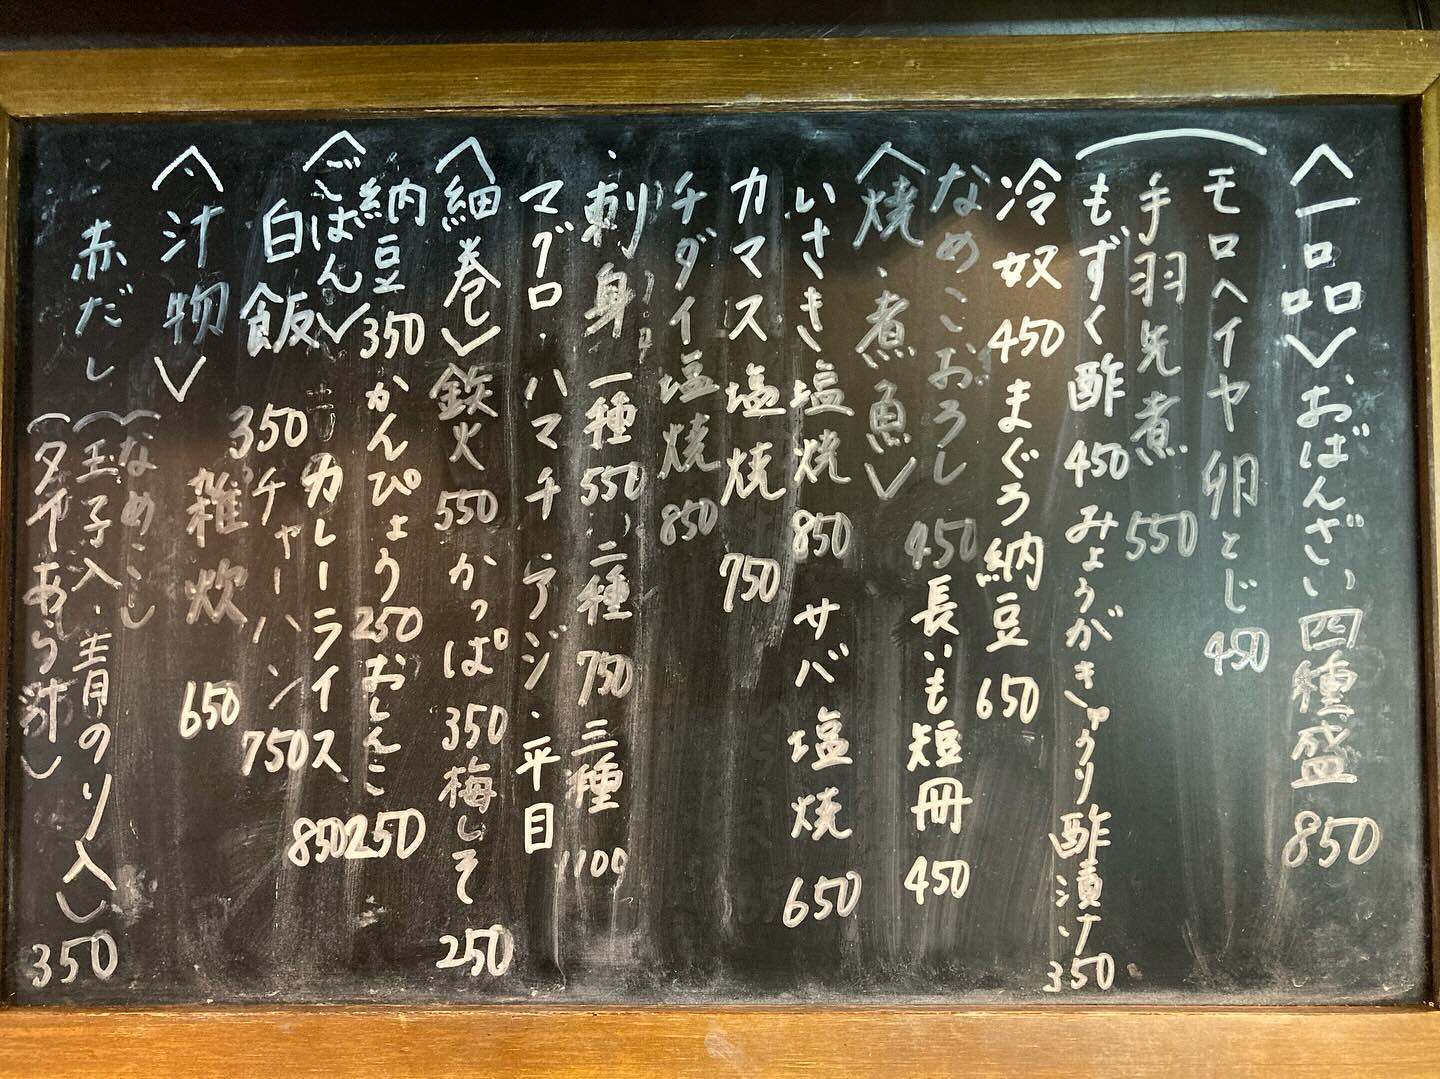 〈一品〉おばんざい四種盛 850
モロヘイヤ卵とじ 450
手羽先煮 550
もずく酢 450 みょうがきゅうり酢漬け 350
冷奴 450 まぐろ納豆 650
なめこおろし 450 長いも短冊 450
〈焼・煮魚〉
いさき塩焼 850 サバ塩焼 650
カマス塩焼 750
チダイ塩焼 850
刺身 一種 550 二種 750 三種 1100
マグロ・ハマチ・アジ・平目
〈細巻〉鉄火 550 かっぱ 350 梅しそ 250
納豆 350 かんぴょう 250 おしんこ 250
〈ごはん〉カレーライス 850
白飯 350 チャーハン 750
雑炊 650
〈汁物〉
赤だし
(なめこ)
(玉子入・青のり入)
(タイあら汁) 350